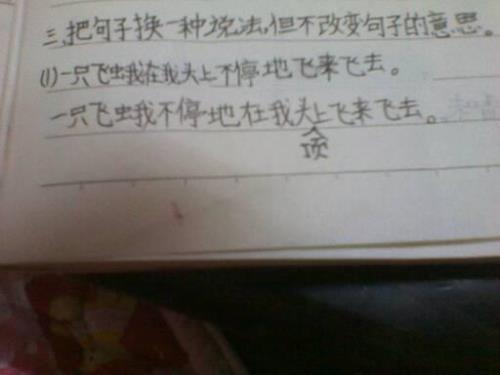 三、把句子换一种说法,但不改变句子的意思。
(1)一只飞蛾在我头上不停地飞来飞去。
一只飞蛾不停地在我头上飞来飞去。
顶